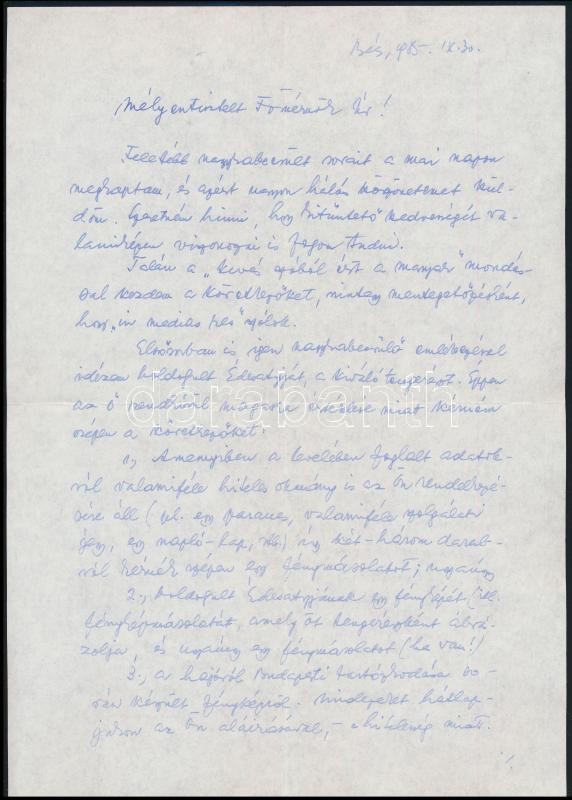 Bécs, 1985. IX. 30.
Mélyentisztelt Főmérnök Úr!
Felettébb nagyrabecsült sorait a mai napon
megkaptam, és azért nagyon hálás köszönetemet kül-
döm. Szeretném hinni, hogy kitüntető kedvességét va-
lamiképen viszonozni is fogom tudni.
Talán a „kevés szóból ért a magyar" mondás-
sal kezdem a következőket, mintegy mentegetőzésként,
hogy „in medias res" szólok.
Elsősorban is igen nagyrabecsülő emlékezéssel
idézem boldogult Édesatyját, a kiváló tengerészt. Éppen
az ő rendkívül magasra értékelése miatt kérném
szépen a következőket:
1., Amennyiben a levelében foglalt adatok-
ról valamiféle hiteles okmány is az Ön rendelkezé-
sére áll (pl. egy parancs, valamiféle szolgálati
jegy, egy napló-lap, stb.) úgy két-három darab-
ról kérnék szépen egy fénymásolatot; ugyanúgy
2., boldogult Édesatyjának egy fényképét (ill.
fényképmásolatát, amely őt tengerészként ábrá-
zolja, és ugyanúgy egy fénymásolatot (ha van!)
3., a hajóról Budapesti tartózkodása so-
rán készült fényképről. Mindezeket hátlap-
jukon az Ön aláírásával, – a hitelesség miatt.
./.
darabanth